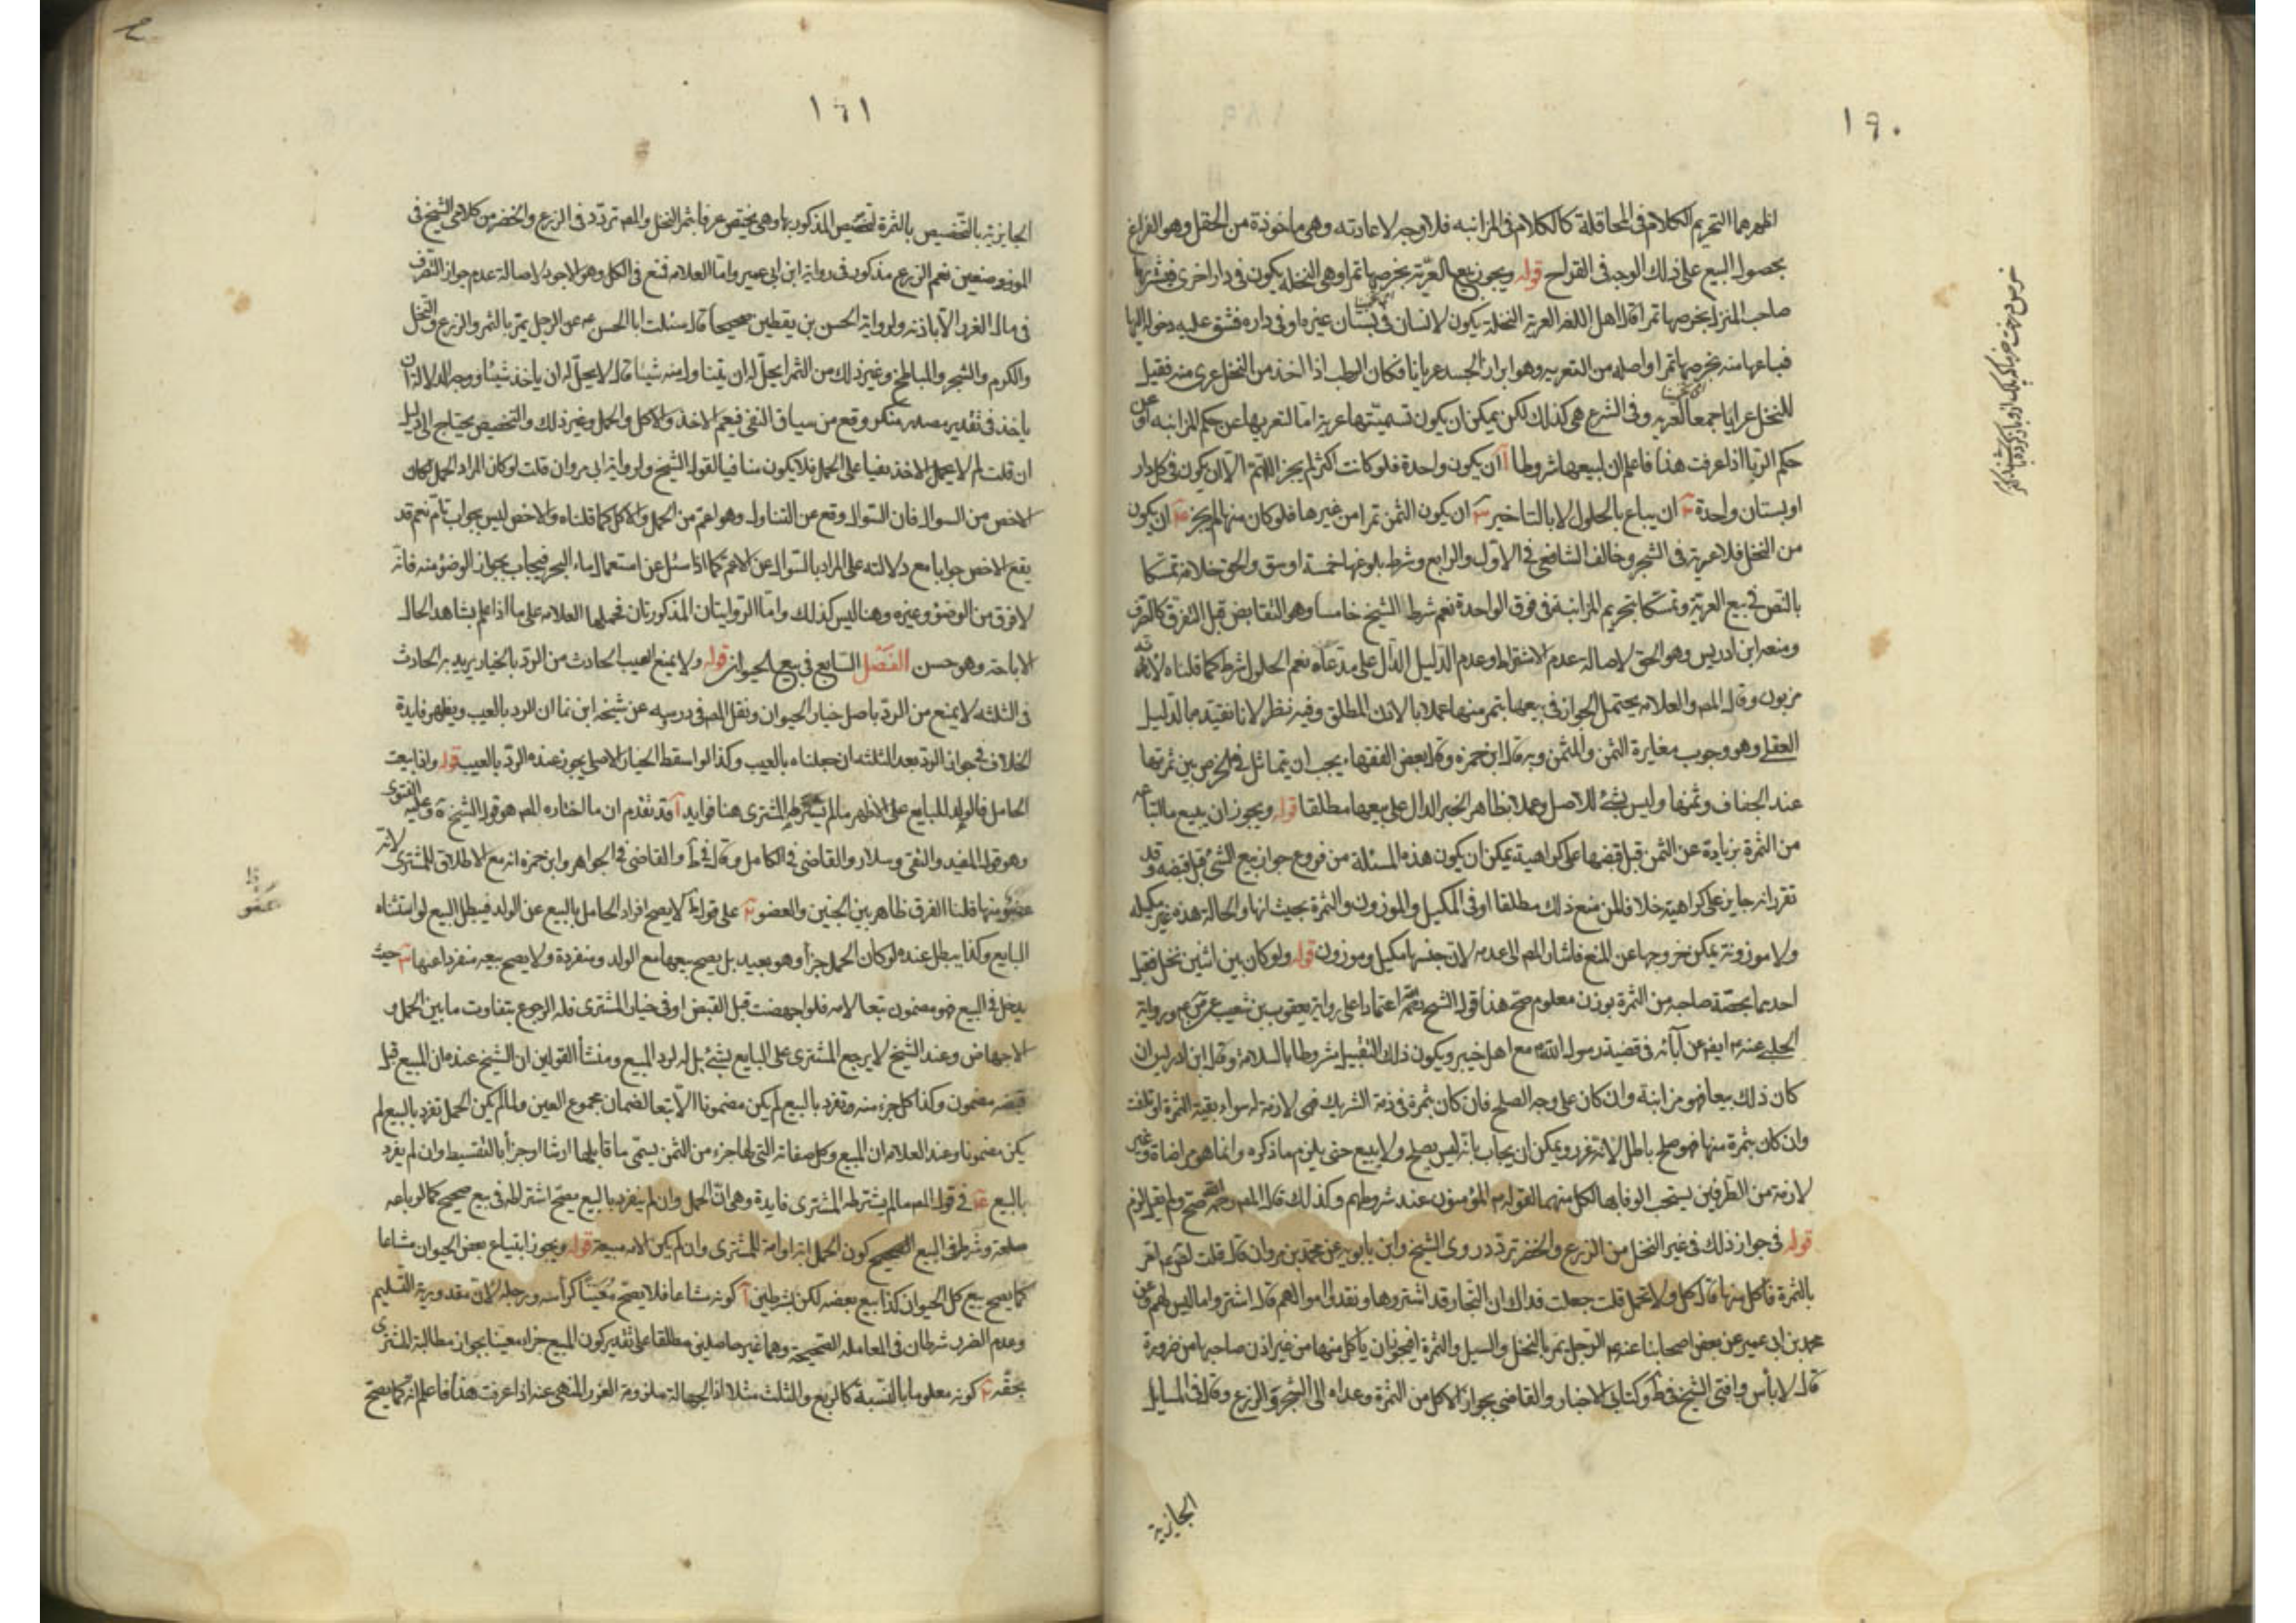 ١٩٠
اظهرهما التحريم الكلام في المحاقلة كالكلام في المزابنه فلا وجه لاعادته وهي ماخوذة من الحقل وهو القراح
بحصول البيع على ذلك الوجه في القراح قوله ويجوز بيع العرية بخرصها تمرا وهي النخله يكون في دار اخرى فيشتريها
صاحب المنزل بخرصها تمرا قال اهل اللغه العرية النخلة يكون لانسان في بستان غيره او في داره فشق عليه دخوله اليها
فباعها منه بخرصها تمرا واصله من التعريه وهو ابراز الجسد عريانا فكان الرطب اذا اخذ من النخل عرى منه فقيل
للنخل عرايا جمعا لعريه وفي الشرع هي كذلك لكن يمكن ان يكون تسميتها عرية اما لتعريها عن حكم المزابنه او عن
حكم الربا اذا عرفت هذا فاعلم ان لبيعها شروطا آ ان يكون واحدة فلو كانت اكثر لم يجز اللهم الا ان يكون في كل دار
او بستان واحدة ان يباع بالحلول لا بالتاخير ان يكون الثمن تمرا من غيرها فلو كان منها لم يجز ان يكون
من النخل فلا عرية في الشجر وخالف الشافعي في الاول والرابع وشرط بلوغها خمسة اوسق والحق خلافه تمسكا
بالنص في بيع العرية وتمسكا بتحريم المزابنة في فوق الواحدة نعم شرط الشيخ خامسا وهو التقابض قبل التفرق كالصرف
ومنعه ابن ادريس وهو الحق لاصالة عدم الاشتراط وعدم الدليل الدال على مدعاه نعم الحلول شرط كما قلناه لانه
وقال المص والعلامه يحتمل الجواز في بيعها بتمر منها عملا بالاذن المطلق وفيه نظر لانا نقيده بالدليل
العقلي وهو وجوب مغايرة الثمن والمثمن وبه قال ابن حمزه وقال بعض الفقهاء يجب ان يتماثل في الخرص بين ثمرتها
عند الجفاف وثمنها وليس بشئ للاصل وعملا بظاهر الخبر الدال على بيعها مطلقا قوله ويجوز ان يبيع ما ابتاعه
من الثمرة بزيادة عن الثمن قبل قبضها على كراهية يمكن ان يكون هذه المسئلة من فروع جواز بيع الشئ قبل قبضه وقد
تقرر انه جايز على كراهيته خلافا لمن منع ذلك مطلقا او في المكيل والموزون والثمرة بحيث انها والحالة هذه غير مكيله
ولا موزونة يمكن خروجها عن المنع فاشار المص الى عدمه لان جنسها مكيل وموزون قوله ولو كان بين اثنين نخل فتقبل
احدهما بحصة صاحبه من الثمرة بوزن معلوم صح هذا قول الشيخ اعتمادا على رواية يعقوب بن شعيب عن ورواية
الحلبي عنه ايضا عن آبائه في قضية رسول الله مع اهل خيبر ويكون ذلك التقبيل مشروطا بالسلامة وقال ابن ادريس ان
كان ذلك بيعا فهو مزابنة وان كان على وجه الصلح فان كان بثمرة في ذمة الشريك فهي لازمة له سواء بقيت الثمرة او تلفت
وان كان بثمرة منها فهو صلح باطل لانه غرر ويمكن ان يجاب بانه ليس بصلح ولا بيع حتى يلزم ما ذكره وانما هو مراضاة وغير
لازمة من الطرفين يستحب الوفا بها لكل منهما لقوله المؤمنون عند شروطهم وكذلك قال المص صح ولم يقل لزم
قوله في جواز ذلك في غير النخل من الزرع والخضر تردد روى الشيخ وابن بابويه عن محمد بن مروان قال قلت امر
بالثمرة فآكل منها قال كل ولا تحمل قلت جعلت فداك ان التجار قد اشتروها ونقدوا اموالهم قال اشتروا ما ليس لهم وعن
محمد بن ابي عمير عن بعض اصحابنا عنه الرجل يمر بالنخل والسنبل والثمرة افيجوز ان ياكل منها من غير اذن صاحبها من ضرورة
قال لا بأس وافتى الشيخ في وكتابي الاخبار والقاضي بجواز الاكل من الثمرة وعداه الى الشجر والزرع وقال في المسايل
الحايرية
١٩١
الحايرية بالتخصيص بالثمرة لتخصيص المذكور بها وهي يختص عرفا بثمر النخل والمص تردد في الزرع والخضر من كلامي الشيخ في
الموضعين نعم الزرع مذكور في رواية ابن ابي عمير واما العلامه فمنع في الكل وهو الاجود لاصالة عدم جواز التصرف
في مال الغير الا باذنه ولرواية الحسن بن يقطين صحيحا قال سئلت ابا الحسن عن الرجل يمر بالثمر والزرع والنخل
والكرم والشجر والمباطخ وغير ذلك من الثمر ايحل له ان يتناول منه شيئا قال لا يحل له ان ياخذ شيئا ووجه الدلالة ان
ياخذ في تقدير مصدر منكر وقع من سياق النفي فيعم الاخذ والاكل والحمل وغير ذلك والتخصيص يحتاج الى دليل
ان قلت لم لا يحمل الاخذ نفيا على الحمل فلا يكون منافيا لقول الشيخ ولرواية ابن مروان قلت لو كان المراد الحمل لكان
الاخص من السؤال فان السؤال وقع عن التناول وهو اعم من الحمل والاكل كما قلناه والاخص ليس بجواب تام نعم قد
يقع الاخص جوابا مع دلالته على المراد بالسؤال عن الاعم كما اذا سئل عن استعمال ماء البحر فيجاب بجواز الوضوء منه فانه
لا فرق من الوضوء وغيره وهنا ليس كذلك واما الروايتان المذكورتان فحملها العلامه على ما اذا علم بشاهد الحال
الاباحة وهو حسن الفصل السابع في بيع الحيوان قوله ولا يمنع العيب الحادث من الرد بالخيار يريد به الحادث
في الثلثه لا يمنع من الرد باصل خيار الحيوان ونقل المص في درسه عن شيخه ابن نما ان الرد بالعيب ويظهر فايدة
الخلاف في جواز الرد بعد الثلثه ان جعلناه بالعيب وكذا لو اسقط الخيار الاصلي يجوز عنده الرد بالعيب قوله واذا بيعت
الحامل فالولد للبايع على الاظهر ما لم يشترطه المشترى هنا فوايد آ قد تقدم ان ما اختاره المص هو قول الشيخ وعليه الفتوى
وهو قول المفيد والتقي وسلار والقاضي في الكامل وقال في ط والقاضي في الجواهر وابن حمزه انه مع الاطلاق للمشترى لانه
عضو منها قلنا الفرق ظاهر بين الجنين والعضو على قول ط لا يصح افراد الحامل بالبيع عن الولد فيبطل البيع لو استثناه
البايع وكذا يبطل عنده لو كان الحمل حرا وهو بعيد بل يصح بيعها مع الولد ومنفردة ولا يصح بيعه منفردا عنها حيث
يدخل في البيع فهو مضمون تبعا لامه فلو اجهضت قبل القبض او في خيار المشترى فله الرجوع بتفاوت ما بين الحمل و
الاجهاض وعند الشيخ لا يرجع المشترى على البايع بشئ بل له رد المبيع ومنشأ القولين ان الشيخ عنده ان المبيع قبل
قبضه مضمون وكذا كل جزء منه وتفرد بالبيع لم يكن مضمونا الا تبعا لضمان مجموع العين ولما لم يكن الحمل تفرد بالبيع لم
يكن مضمونا وعند العلامه ان المبيع وكل صفاته التي لها جزء من الثمن يسمى ما قابلها ارشا او جزأ بالتقسيط وان لم يفرد
بالبيع في قول المص ما لم يشترطه المشترى فايدة وهي ان الحمل وان لم ينفرد بالبيع يصح اشتراطه في بيع صحيح كما لو باعه
سلعة وشرط في البيع الصحيح كون الحمل ابنه او امة للمشترى وان لم يكن الام مبيعة قوله ويجوز ابتياع بعض الحيوان مشاعا
كما يصح بيع كل الحيوان كذا بيع بعضه لكن بشرطين آ كونه مشاعا فلا يصح معينا كرأسه ورجله لان مقدورية التسليم
وعدم الضرر شرطان في المعامله الصحيحة وهما غير حاصلين مطلقا على تقدير كون المبيع جزاء معينا بجواز مطالبة المشترى
بحقه كونه معلوما بالنسبة كالربع والثلث مثلا اذ الجهالة ملزومة الغرر المنهي عنه اذا عرفت هذا فاعلم انه كما يصح
عضو